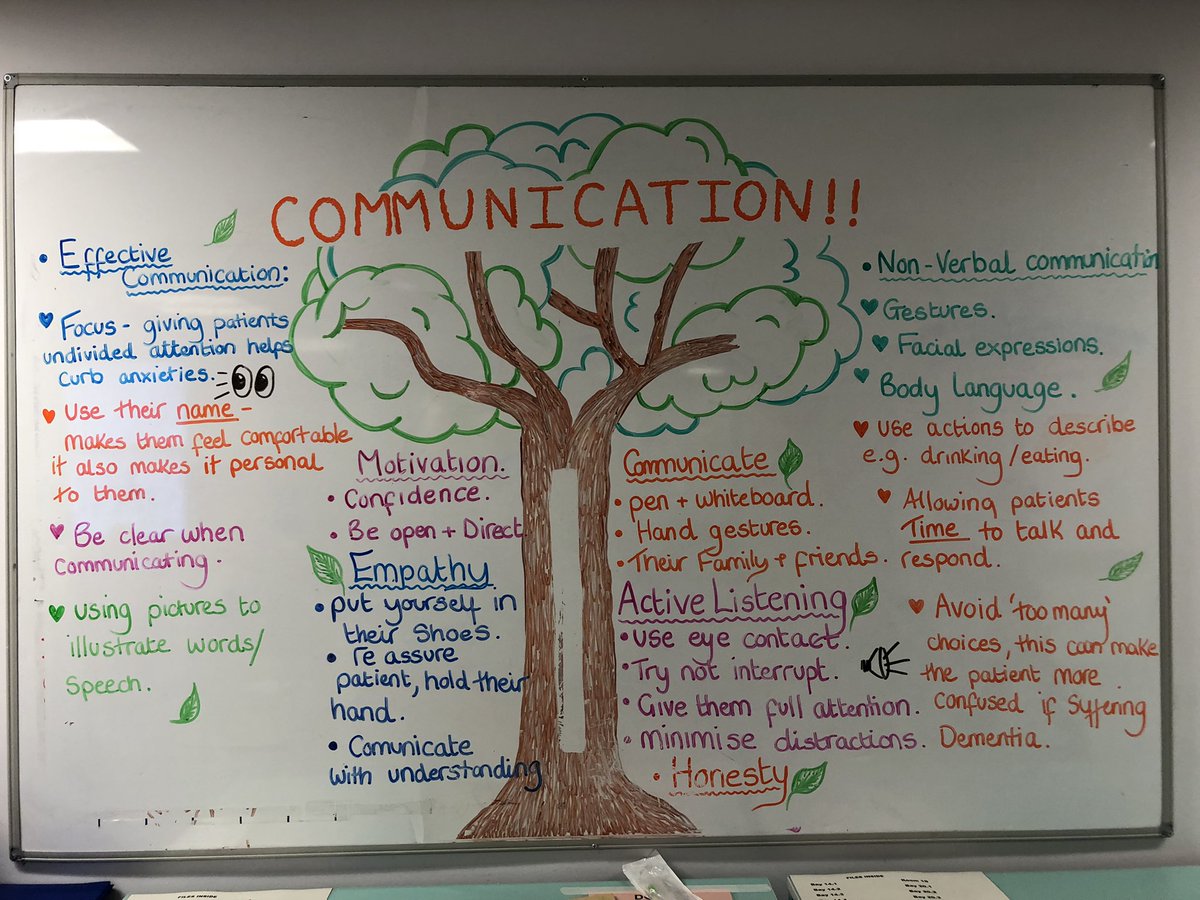 COMMUNICATION!!
• Effective
Communication:
Focus - giving patients
undivided attention helps
curb anxieties.
Use their name -
makes them feel comfortable
it also makes it personal
to them.
Be clear when
communicating.
using pictures to
illustrate words/
Speech.
Motivation.
• Confidence.
• Be open + Direct
Empathy
• put yourself in
their shoes.
• re assure
patient, hold their
hand.
• Comunicate
with understanding
Communicate
• pen + whiteboard.
• Hand gestures.
• Their Family + friends.
Active Listening
• use eye contact.
• Try not interrupt.
• Give them full attention.
• minimise distractions.
• Honesty
• Non-Verbal communication
Gestures.
Facial expressions.
Body Language.
use actions to describe
e.g. drinking/eating.
Allowing patients
Time to talk and
respond.
Avoid 'too many'
choices, this can make
the patient more
confused if Suffering
Dementia.
FILES INSIDE
FILES INSIDE
Bay 14.1
Bay 14.2
Room 18
Bay 20.1